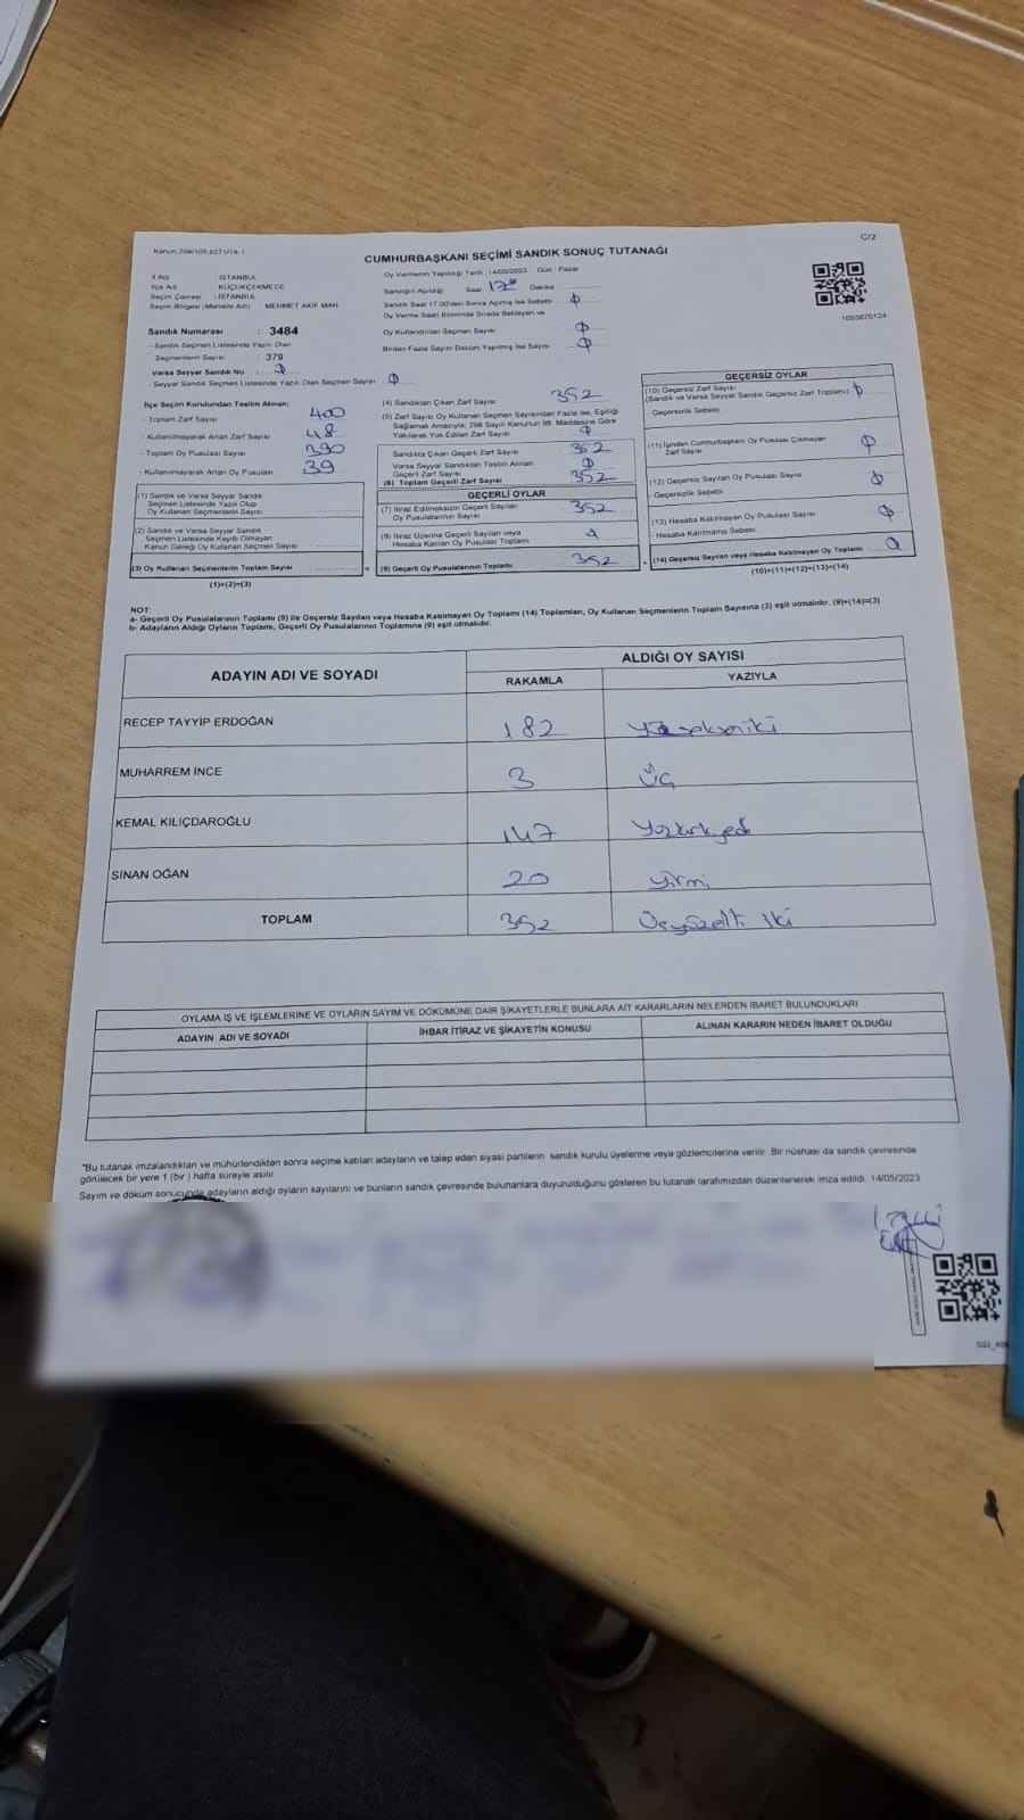 C/2
CUMHURBAŞKANI SEÇİMİ SANDIK SONUÇ TUTANAĞI
İSTANBUL
KÜÇÜKÇEKMECE
İSTANBUL
MEHMET AKİF MAH.
Sandık Numarası : 3484
Sandık Seçmen Listesinde Yazılı Olan
Seçmenlerin Sayısı : 379
Varsa Seyyar Sandık No :
Seyyar Sandık Seçmen Listesinde Yazılı Olan Seçmen Sayısı
İlçe Seçim Kurulundan Teslim Alınan;
Toplam Zarf Sayısı 400
Kullanılmayarak Artan Zarf Sayısı 48
Toplam Oy Pusulası Sayısı 390
Kullanılmayarak Artan Oy Pusulası 39
(1) Sandık ve Varsa Seyyar Sandık
Seçmen Listesinde Yazılı Olup
Oy Kullanan Seçmenlerin Sayısı
(2) Sandık ve Varsa Seyyar Sandık
Seçmen Listesinde Kayıtlı Olmayan
Kanun Gereği Oy Kullanan Seçmen Sayısı
(3) Oy Kullanan Seçmenlerin Toplam Sayısı
(1)+(2)=(3)
Oy Vermenin Yapıldığı Tarih : 14/05/2023 Gün : Pazar
Oy Kullandırılan Seçmen Sayısı
Birden Fazla Sayım Döküm Yapılmış İse Sayısı
(4) Sandıktan Çıkan Zarf Sayısı 352
(5) Zarf Sayısı Oy Kullanan Seçmen Sayısından Fazla ise, Eşitliği
Sağlamak Amacıyla; 298 Sayılı Kanunun 98. Maddesine Göre
Yakılarak Yok Edilen Zarf Sayısı
Sandıkta Çıkan Geçerli Zarf Sayısı 352
Varsa Seyyar Sandıktan Teslim Alınan
Geçerli Zarf Sayısı
(6) Toplam Geçerli Zarf Sayısı 352
GEÇERLİ OYLAR
(7) İtiraz Edilmeksizin Geçerli Sayılan
Oy Pusulalarının Sayısı 352
(8) İtiraz Üzerine Geçerli Sayılan veya
Hesaba Katılan Oy Pusulası Toplamı
(9) Geçerli Oy Pusulalarının Toplamı 352
GEÇERSİZ OYLAR
(10) Geçersiz Zarf Sayısı
(Sandık ve Varsa Seyyar Sandık Geçersiz Zarf Toplamı)
Geçersizlik Sebebi
(11) İçinden Cumhurbaşkanı Oy Pusulası Çıkmayan
Zarf Sayısı
(12) Geçersiz Sayılan Oy Pusulası Sayısı
Geçersizlik Sebebi
(13) Hesaba Katılmayan Oy Pusulası Sayısı
Hesaba Katılmama Sebebi
(14) Geçersiz Sayılan veya Hesaba Katılmayan Oy Toplamı
(10)+(11)+(12)+(13)=(14)
NOT:
a- Geçerli Oy Pusulalarının Toplamı (9) ile Geçersiz Sayılan veya Hesaba Katılmayan Oy Toplamı (14) Toplamları, Oy Kullanan Seçmenlerin Toplam Sayısına (3) eşit olmalıdır. (9)+(14)=(3)
b- Adayların Aldığı Oyların Toplamı, Geçerli Oy Pusulalarının Toplamına (9) eşit olmalıdır.
ADAYIN ADI VE SOYADI
ALDIĞI OY SAYISI
RAKAMLA YAZIYLA
RECEP TAYYİP ERDOĞAN 182 Yüzseksen iki
MUHARREM İNCE 3 Üç
KEMAL KILIÇDAROĞLU 147 Yüzkırkyedi
SİNAN OĞAN 20 Yirmi
TOPLAM 352 Üçyüzelli iki
OYLAMA İŞ VE İŞLEMLERİNE VE OYLARIN SAYIM VE DÖKÜMÜNE DAİR ŞİKAYETLERLE BUNLARA AİT KARARLARIN NELERDEN İBARET BULUNDUKLARI
ADAYIN ADI VE SOYADI İHBAR İTİRAZ VE ŞİKAYETİN KONUSU ALINAN KARARIN NEDEN İBARET OLDUĞU
"Bu tutanak imzalandıktan ve mühürlendikten sonra seçime katılan adayların ve talep eden siyasi partilerin sandık kurulu üyelerine veya gözlemcilerine verilir. Bir nüshası da sandık çevresinde
görülecek bir yere 1 (bir ) hafta süreyle asılır.
Sayım ve döküm sonucunda adayların aldığı oyların sayılarını ve bunların sandık çevresinde bulunanlara duyurulduğunu gösteren bu tutanak tarafımızdan düzenlenerek imza edildi. 14/05/2023